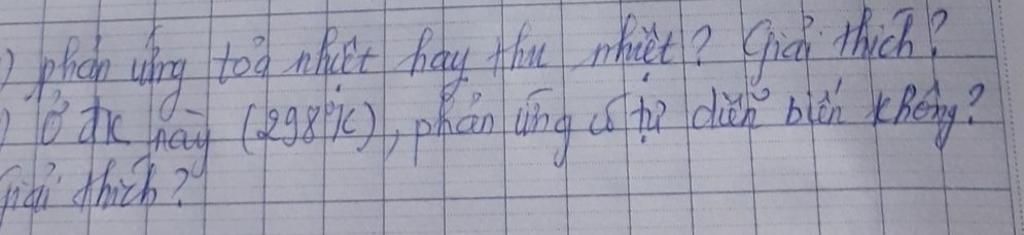 ) phản ứng toả nhiệt hay thu nhiệt? Giải thích?
) Ở đk này (298°K), phản ứng có tự diễn biến không?
Giải thích?